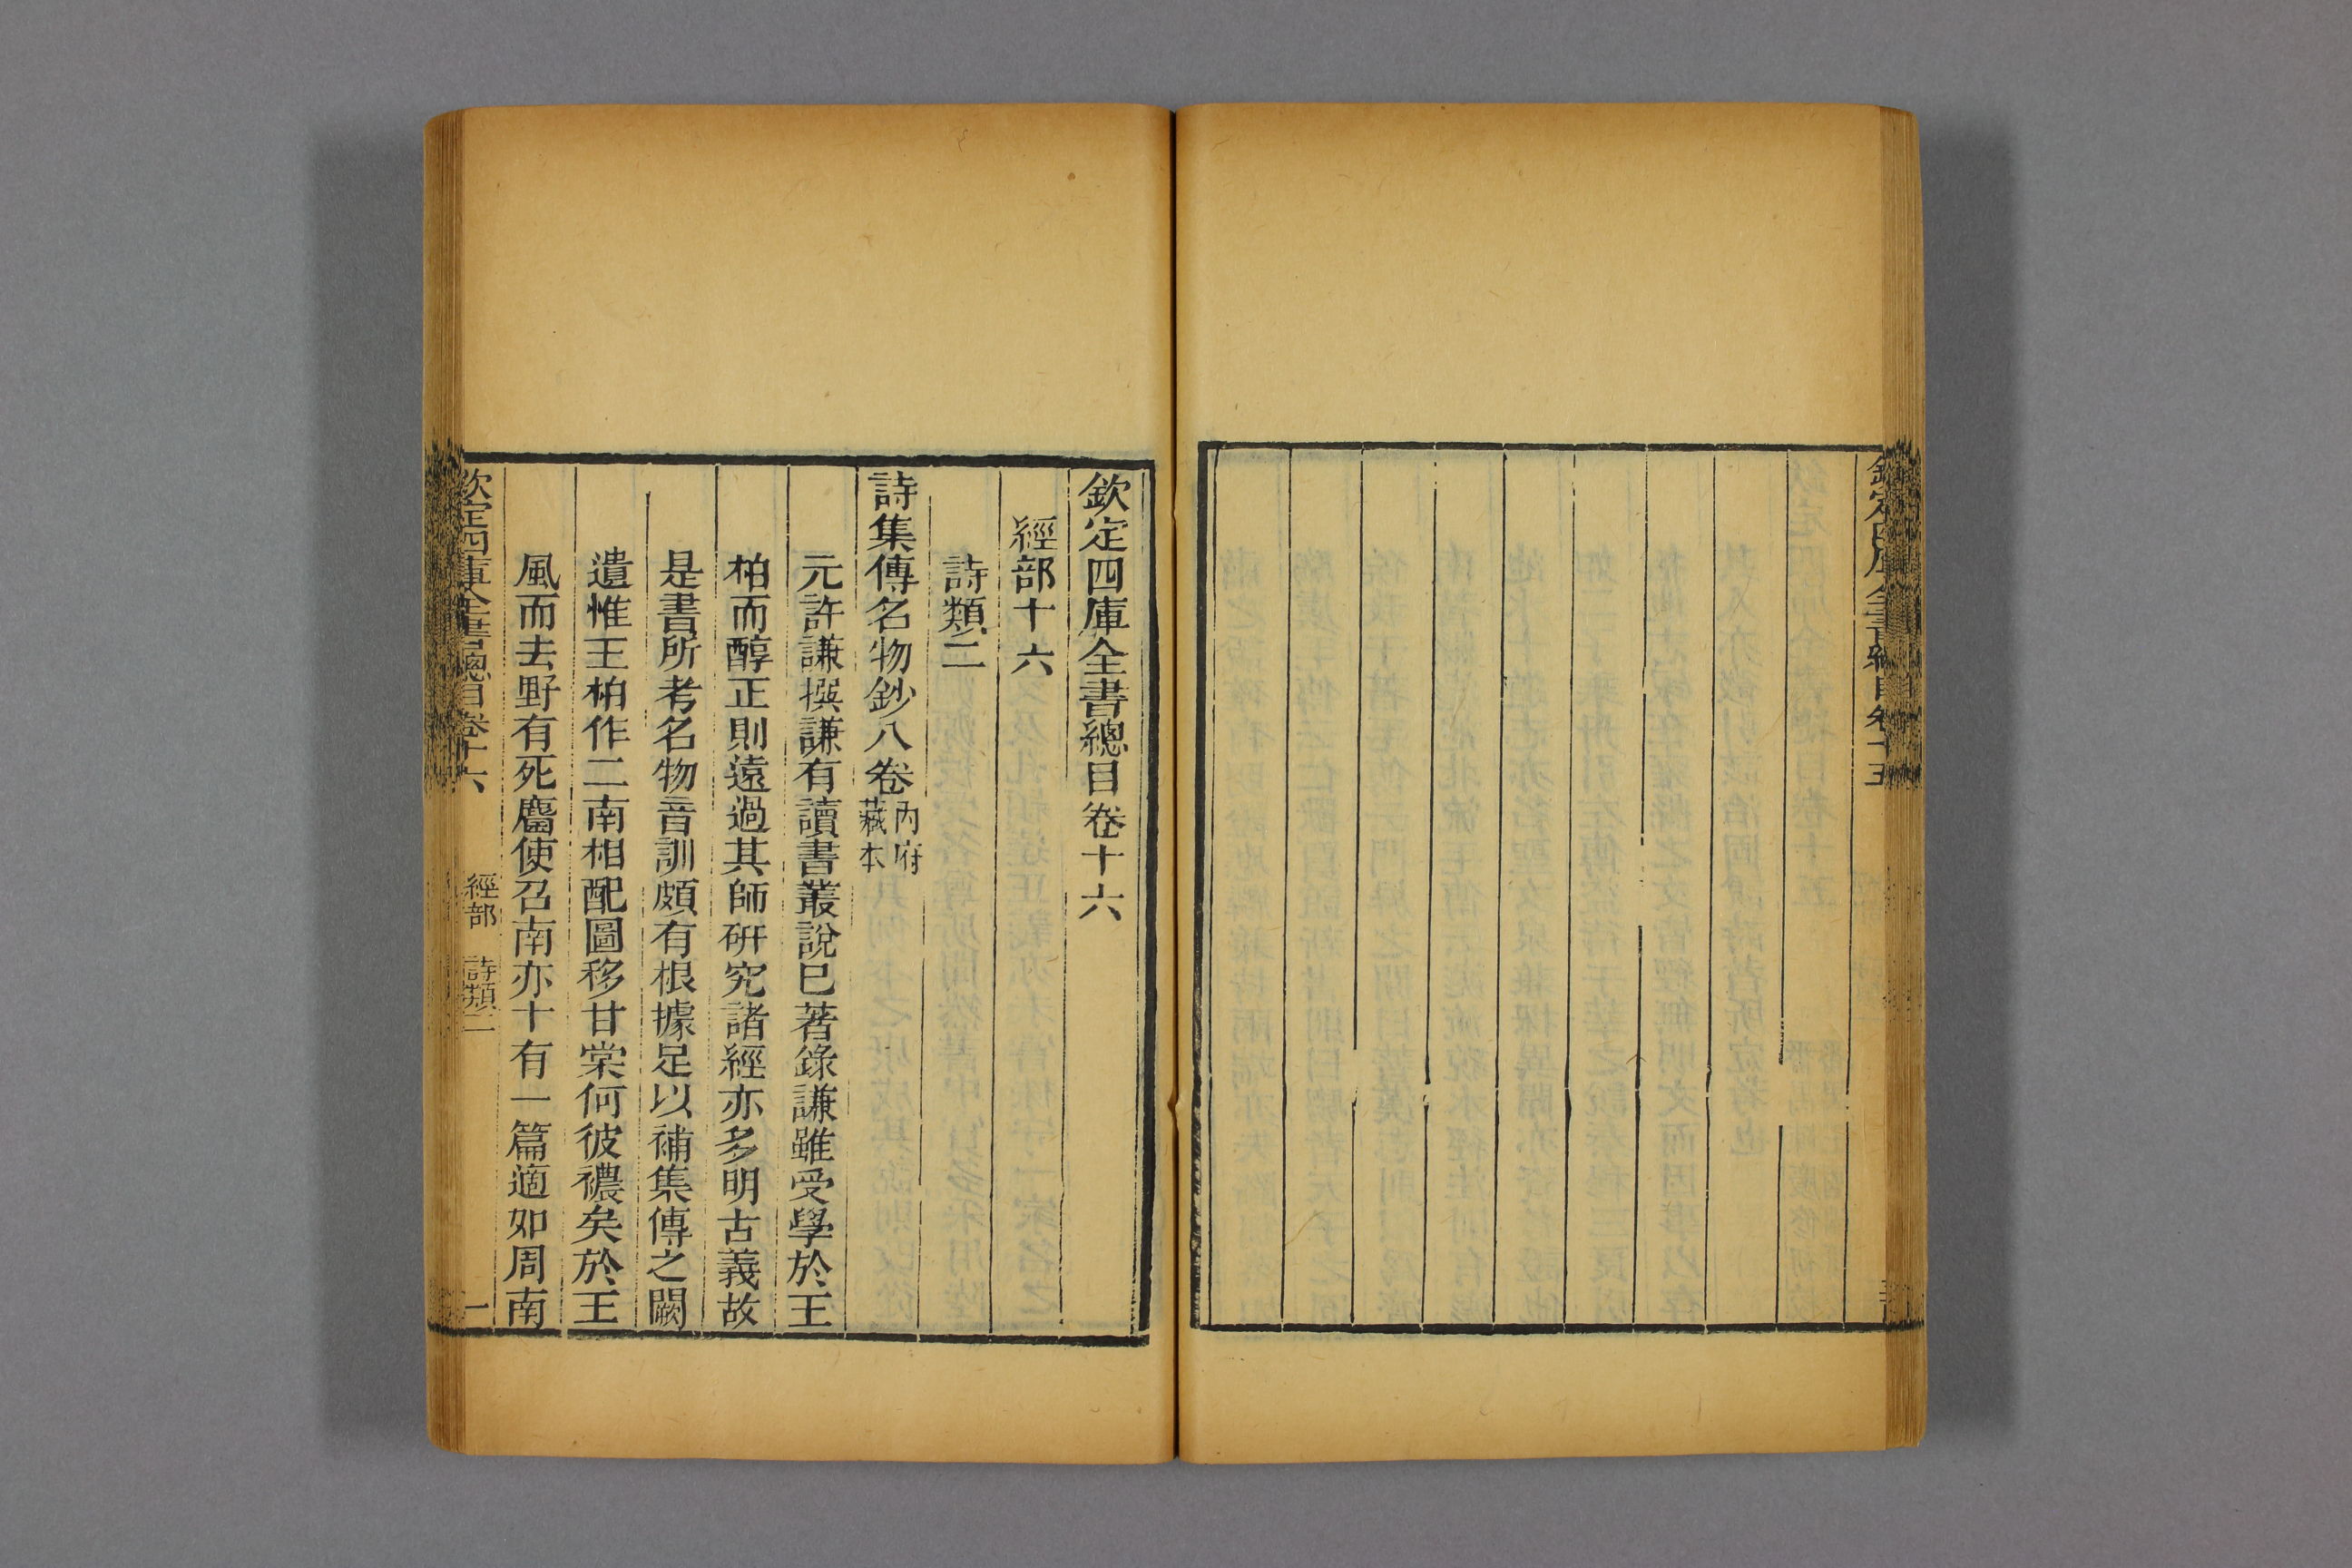 欽定四庫全書總目卷十五
欽定四庫全書總目卷十六
經部十六
詩類二
詩集傳名物鈔八卷內府藏本
元許謙撰謙有讀書叢說已著錄謙雖受學於王
柏而醇正則遠過其師研究諸經亦多明古義故
是書所考名物音訓頗有根據足以補集傳之闕
遺惟王柏作二南相配圖移甘棠何彼襛矣於王
風而去野有死麕使召南亦十有一篇適如周南
欽定四庫全書總目卷十六 經部 詩類二 一